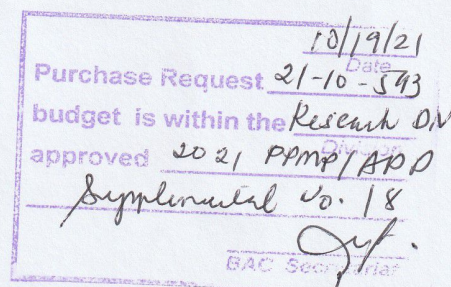 10/19/21
Date
Purchase Request 21-10-593
budget is within the Research Div
Division
approved 2021 PPMP/APP
Supplemental No. 18
BAC Secretariat